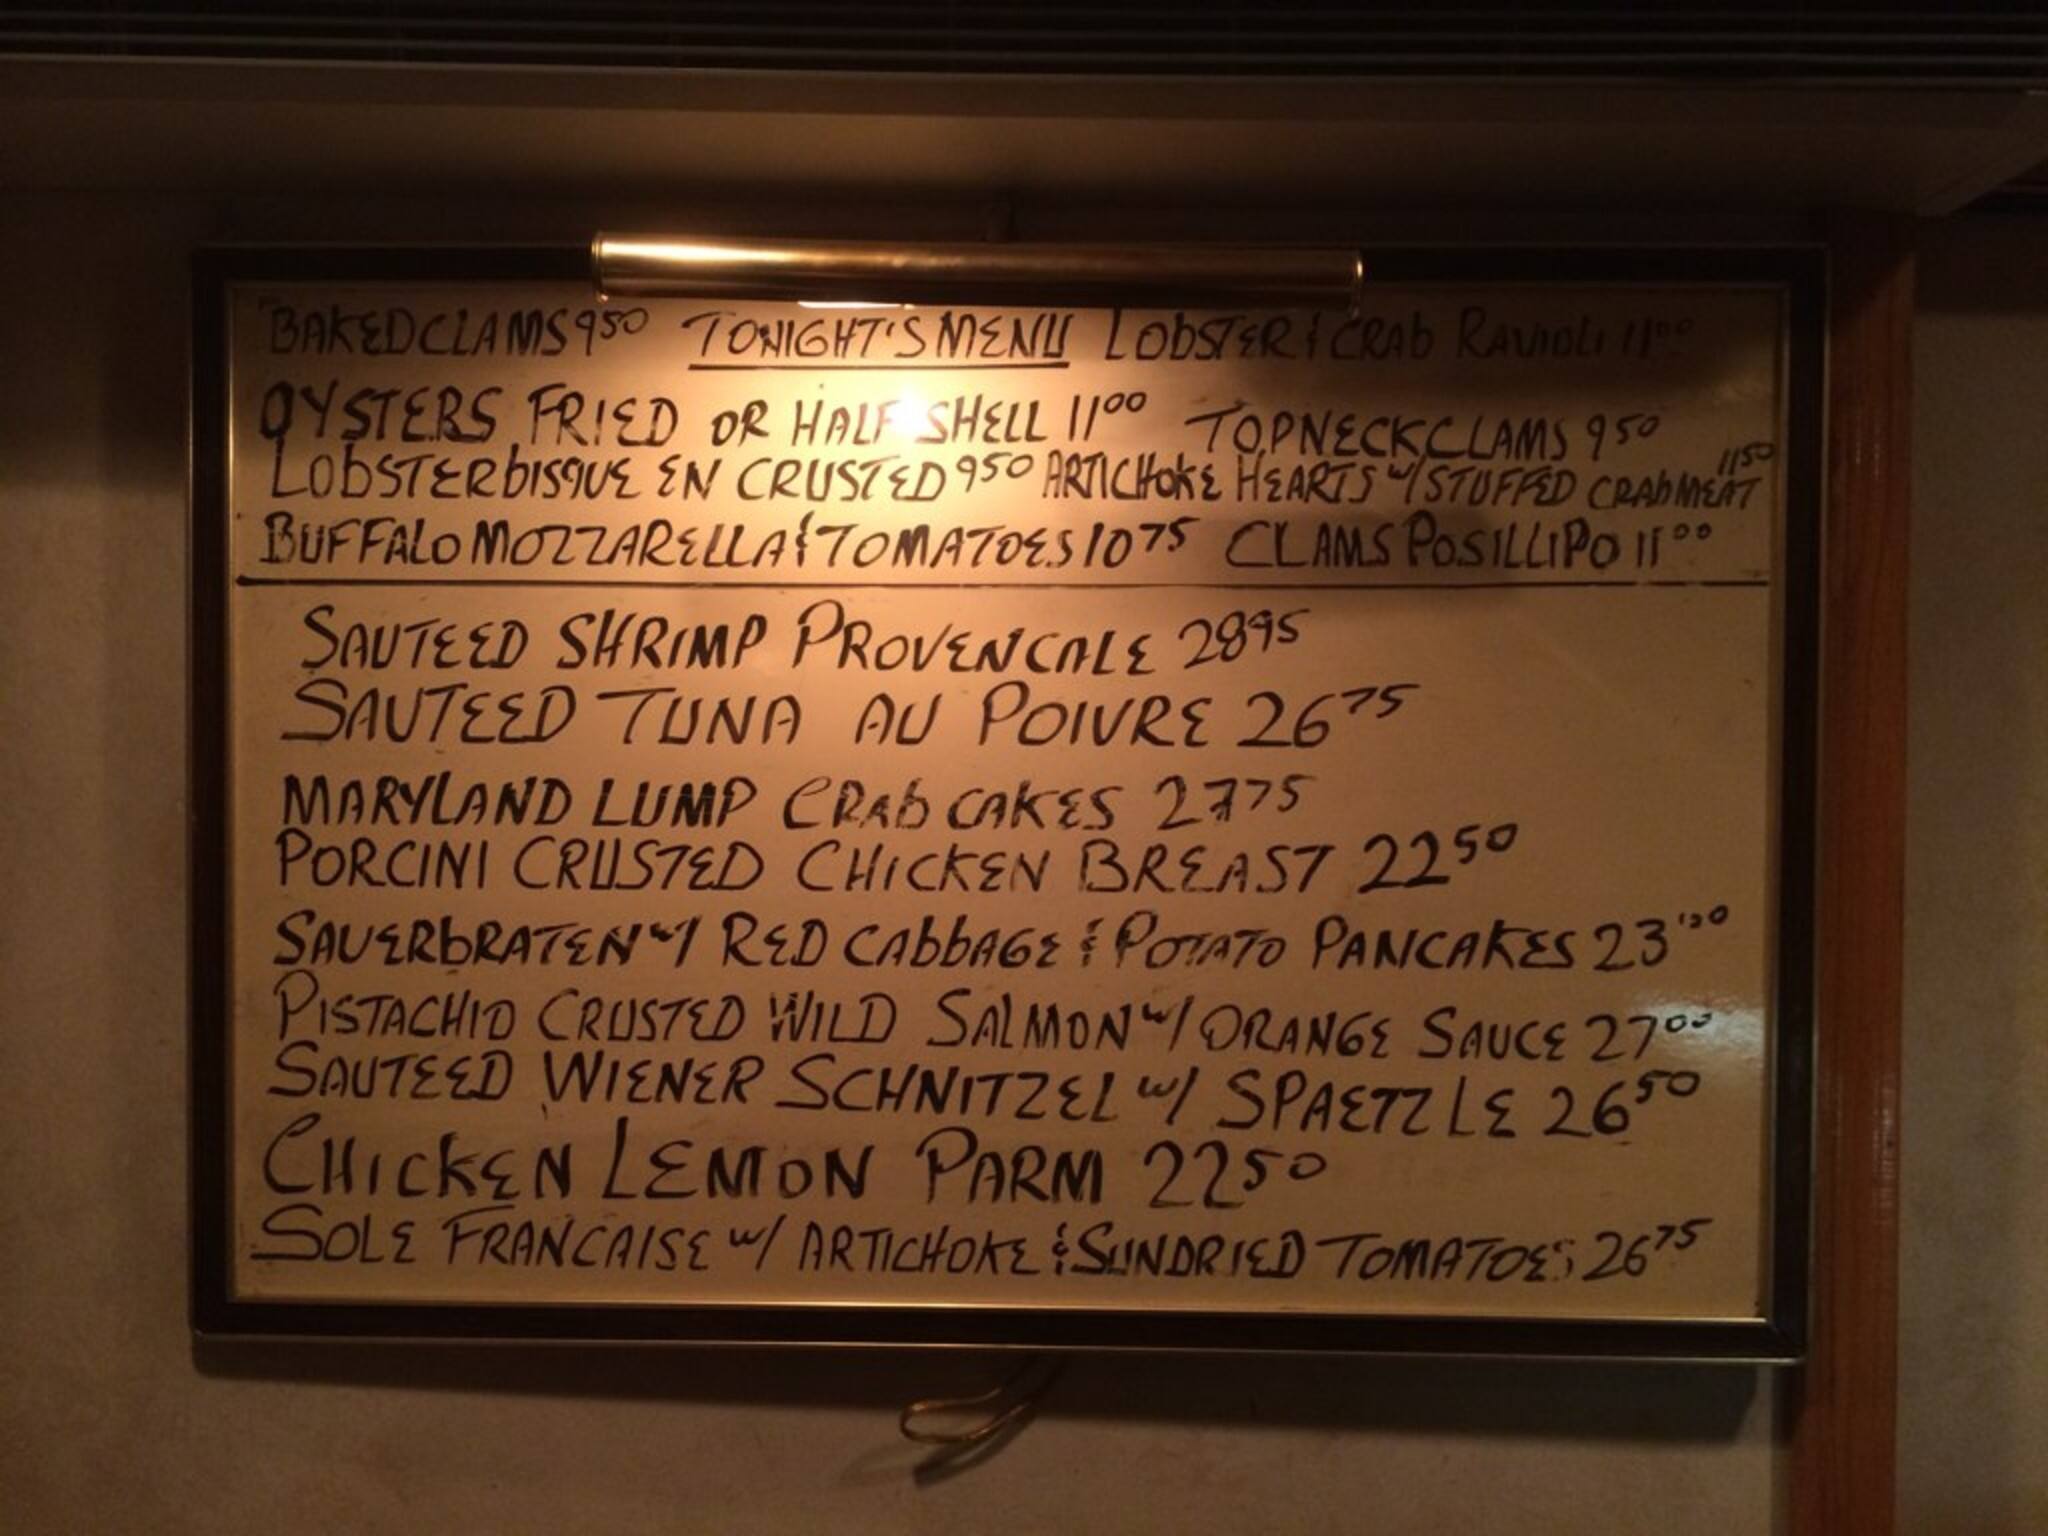 BAKED CLAMS 9 50 TONIGHT'S MENU LOBSTER & CRAB RAVIOLI 11 00
OYSTERS FRIED OR HALF SHELL 11 00 TOPNECK CLAMS 9 50
LOBSTER BISQUE EN CRUSTED 9 50 ARTICHOKE HEARTS w/ STUFFED CRABMEAT 11 50
BUFFALO MOZZARELLA & TOMATOES 10 75 CLAMS POSILLIPO 11 00
SAUTEED SHRIMP PROVENCALE 28 95
SAUTEED TUNA AU POIVRE 26 75
MARYLAND LUMP CRAB CAKES 27 75
PORCINI CRUSTED CHICKEN BREAST 22 50
SAUERBRATEN w/ RED CABBAGE & POTATO PANCAKES 23 00
PISTACHIO CRUSTED WILD SALMON w/ ORANGE SAUCE 27 00
SAUTEED WIENER SCHNITZEL w/ SPAETZLE 26 50
CHICKEN LEMON PARM 22 50
SOLE FRANCAISE w/ ARTICHOKE & SUNDRIED TOMATOES 26 75